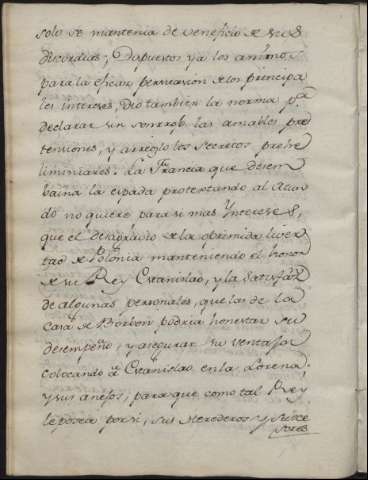 solo se mantenia de veneficio de sus
discordias; Dispuestos ya los animos
para la eficaz persuasion de los principa
les intereses, Dio tambien la norma pª
declarar sin sonrrojo las amables pre
tensiones, y arreglo los secretos preli
liminiares. La Francia que desem
baina la espada protestando al Mun
do no quiere para si mas Ynterese s,
que el desagravio de la oprimida liver
tad de Polonia manteniendo el honor
de su Rey Estanislao, y la satisfaz.n
de algunas personales, que las de la
Casa de Borbon podria honestar su
desempeño, y asegurar su ventaja
colocando á Estanislao en la Lorena,
y sus anejos, para que como tal Rey
le posea por si, sus Herederos y Subce
sores